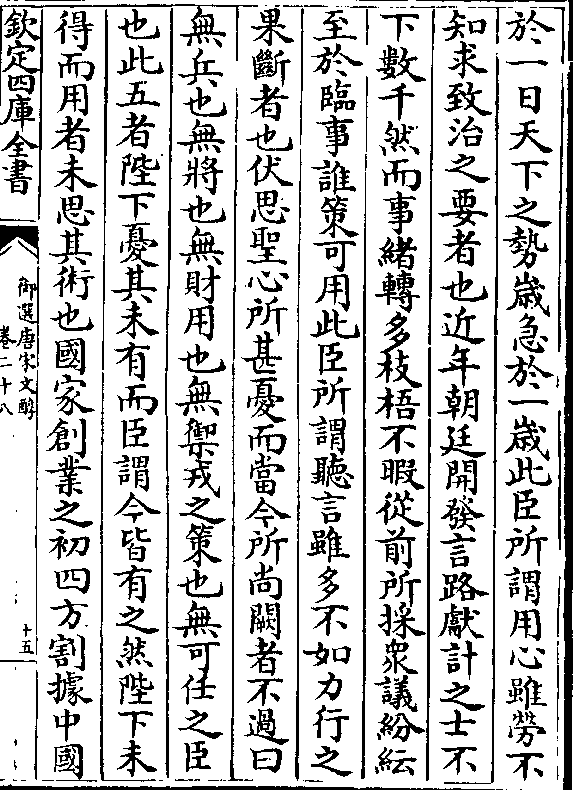 於一日天下之勢歲急於一歲此臣所謂用心雖勞不
知求致治之要者也近年朝廷開發言路獻計之士不
下數千然而事緒轉多枝梧不暇從前所採衆議紛紜
至於臨事誰策可用此臣所謂聽言雖多不如力行之
果斷者也伏思聖心所甚憂而當今所尚闕者不過曰
無兵也無將也無財用也無禦戎之策也無可任之臣
也此五者陛下憂其未有而臣謂今皆有之然陛下未
得而用者未思其術也國家創業之初四方割據中國
欽定四庫全書
御選唐宋文醇
卷二十八
十五